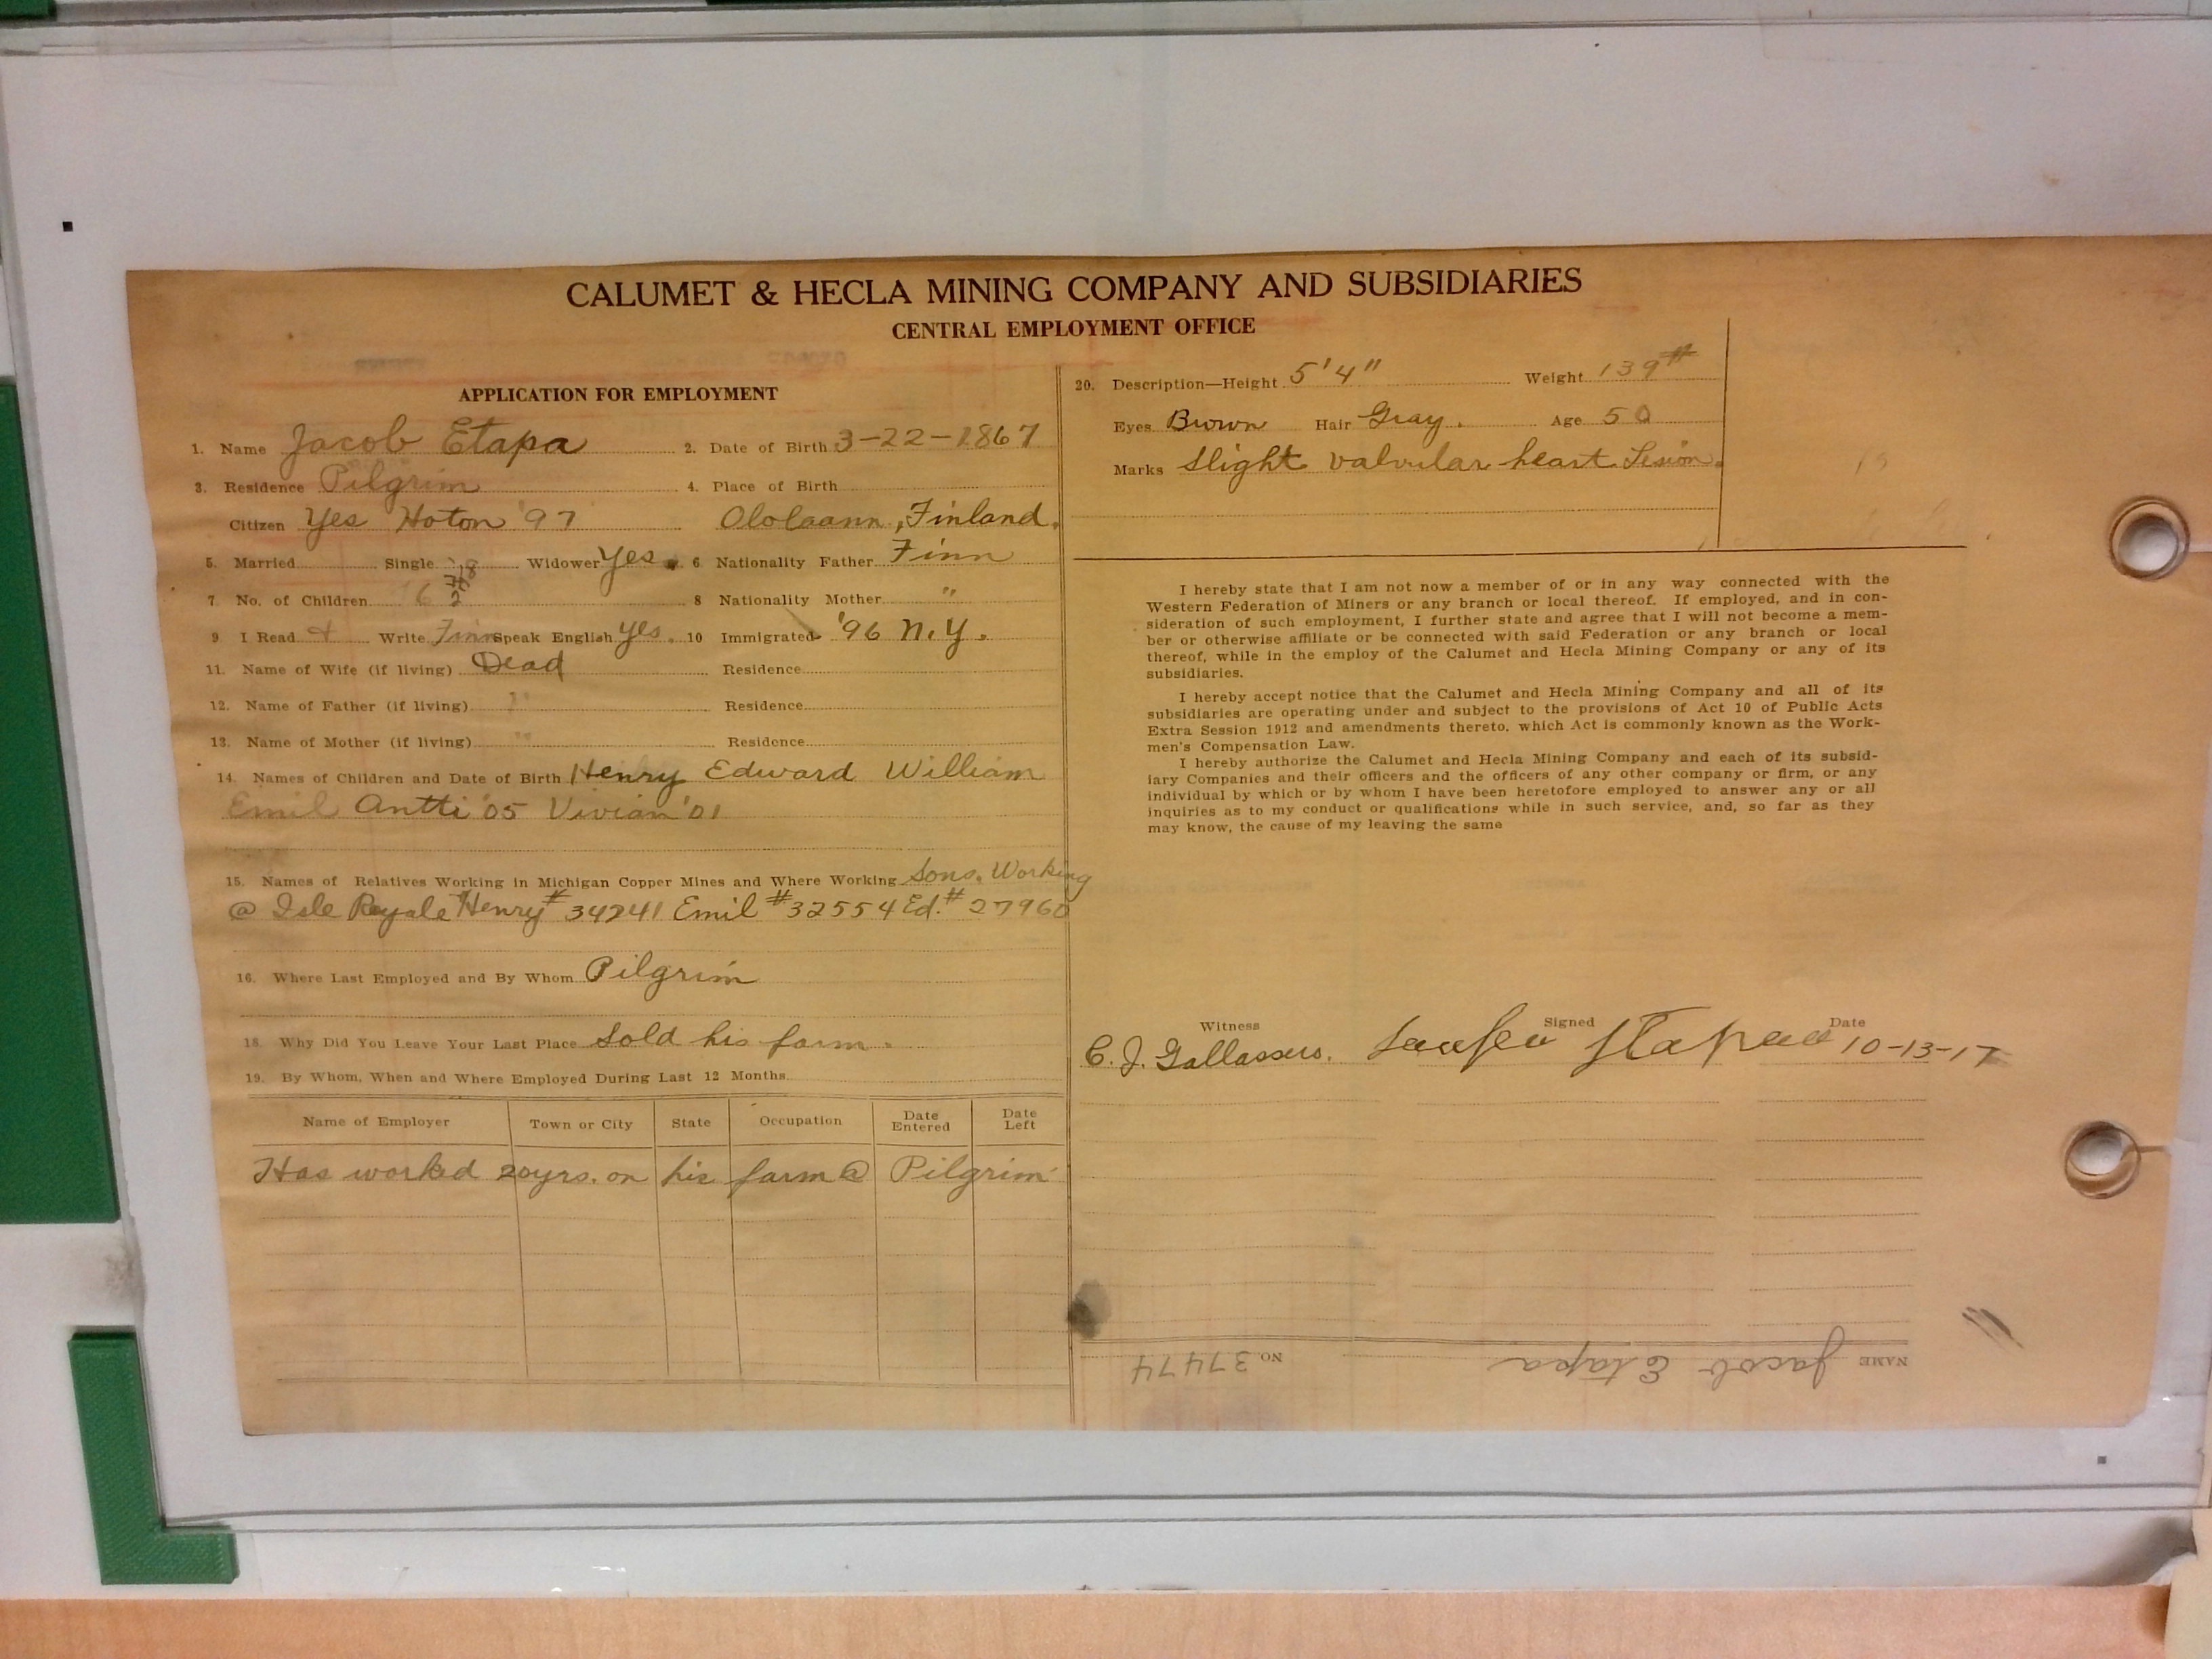 CALUMET & HECLA MINING COMPANY AND SUBSIDIARIES
CENTRAL EMPLOYMENT OFFICE
APPLICATION FOR EMPLOYMENT
1. Name Jacob Etapa 2. Date of Birth 3-22-1867
3. Residence Pilgrim 4. Place of Birth
Citizen Yes Hoton '97 Ololaann, Finland.
5. Married Single Widower Yes. 6 Nationality Father Finn
7 No. of Children 6 8 Nationality Mother "
9 I Read & Write Finn Speak English yes. 10 Immigrated '96 N.Y.
11. Name of Wife (if living) Dead Residence
12. Name of Father (if living) " Residence
13. Name of Mother (if living) " Residence
14. Names of Children and Date of Birth Henry Edward William
Emil Antti '05 Vivian '01
15. Names of Relatives Working in Michigan Copper Mines and Where Working Sons. Working
@ Isle Royale Henry # 34241 Emil #32554 Ed. # 27960
16. Where Last Employed and By Whom Pilgrim
18. Why Did You Leave Your Last Place Sold his farm.
19. By Whom, When and Where Employed During Last 12 Months
Name of Employer Town or City State Occupation Date Entered Date Left
Has worked 20yrs. on his farm @ Pilgrim
20. Description—Height 5'4" Weight 139#
Eyes Brown Hair Gray. Age 50
Marks Slight valvular heart Lesion.
I hereby state that I am not now a member of or in any way connected with the
Western Federation of Miners or any branch or local thereof. If employed, and in con-
sideration of such employment, I further state and agree that I will not become a mem-
ber or otherwise affiliate or be connected with said Federation or any branch or local
thereof, while in the employ of the Calumet and Hecla Mining Company or any of its
subsidiaries.
I hereby accept notice that the Calumet and Hecla Mining Company and all of its
subsidiaries are operating under and subject to the provisions of Act 10 of Public Acts
Extra Session 1912 and amendments thereto, which Act is commonly known as the Work-
men's Compensation Law.
I hereby authorize the Calumet and Hecla Mining Company and each of its subsid-
iary Companies and their officers and the officers of any other company or firm, or any
individual by which or by whom I have been heretofore employed to answer any or all
inquiries as to my conduct or qualifications while in such service, and, so far as they
may know, the cause of my leaving the same
Witness Signed Date
C. J. Gallassero. 10-13-17
NAME Jacob Etapa NO. 37474